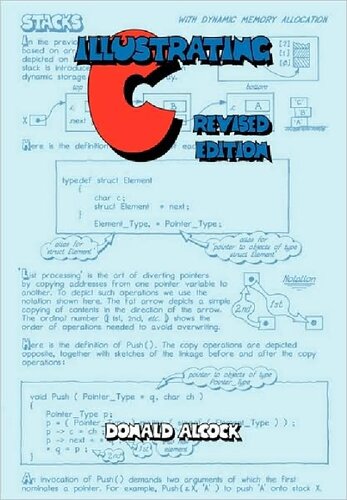 STACKS
WITH DYNAMIC MEMORY ALLOCATION
ILLUSTRATING
C
REVISED
EDITION
In the previous
based on arr
depicted on
stack is introduce
dynamic storage
top
bottom
X
.c
.next
A
Here is the definition
typedef struct Element
{
char c;
struct Element * next;
}
Element_Type, * Pointer_Type;
alias for
struct Element
alias for
pointer to objects of type
struct Element
'List processing' is the art of diverting pointers
by copying addresses from one pointer variable to
another. To depict such operations we use the
notation shown here. The fat arrow depicts a simple
copying of contents in the direction of the arrow.
The ordinal number (1st, 2nd, etc.) shows the
order of operations needed to avoid overwriting.
Notation
2nd
1st
Here is the definition of Push(). The copy operations are depicted
opposite, together with sketches of the linkage before and after the copy
operations:
pointer to objects of type
Pointer_Type
void Push ( Pointer_Type * q, char ch )
{
Pointer_Type p;
p -> c = ch
p -> next =
* q = p;
2nd
1st
DONALD ALCOCK
An invocation of Push() demands two arguments of which the first
nominates a pointer. For example, Push ( &X, 'A' ) to push 'A' onto stack X.